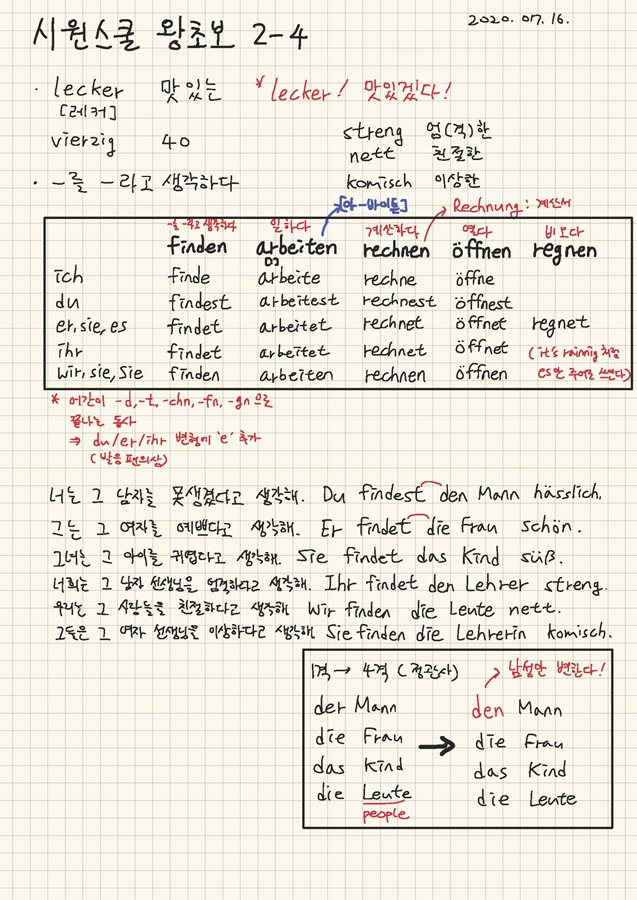 시원스쿨 왕초보 2-4
2020. 07. 16.
· lecker 맛있는 * lecker! 맛있겠다!
[레커]
vierzig 40
streng 엄(격)한
nett 친절한
komisch 이상한
· -를 -라고 생각하다
[아-바이튼]
Rechnung: 계산서
-를 -라고 생각하다 일하다 계산하다 열다 비오다
finden arbeiten rechnen öffnen regnen
ich finde arbeite rechne öffne
du findest arbeitest rechnest öffnest
er, sie, es findet arbeitet rechnet öffnet regnet
ihr findet arbeitet rechnet öffnet (it's rainnig 처럼
wir, sie, Sie finden arbeiten rechnen öffnen es만 주어로 쓰인다)
* 어간이 -d, -t, -chn, -fn, -gn 으로
끝나는 동사
⇒ du/er/ihr 변형에 'e' 추가
(발음 편의상)
너는 그 남자를 못생겼다고 생각해. Du findest den Mann hässlich.
그는 그 여자를 예쁘다고 생각해. Er findet die Frau schön.
그녀는 그 아이를 귀엽다고 생각해. Sie findet das Kind süß.
너희는 그 남자 선생님을 엄격하다고 생각해. Ihr findet den Lehrer streng.
우리는 그 사람들을 친절하다고 생각해 Wir finden die Leute nett.
그들은 그 여자 선생님을 이상하다고 생각해 Sie finden die Lehrerin komisch.
1격 → 4격 (정관사) 남성만 변한다!
der Mann den Mann
die Frau → die Frau
das Kind das Kind
die Leute die Leute
people